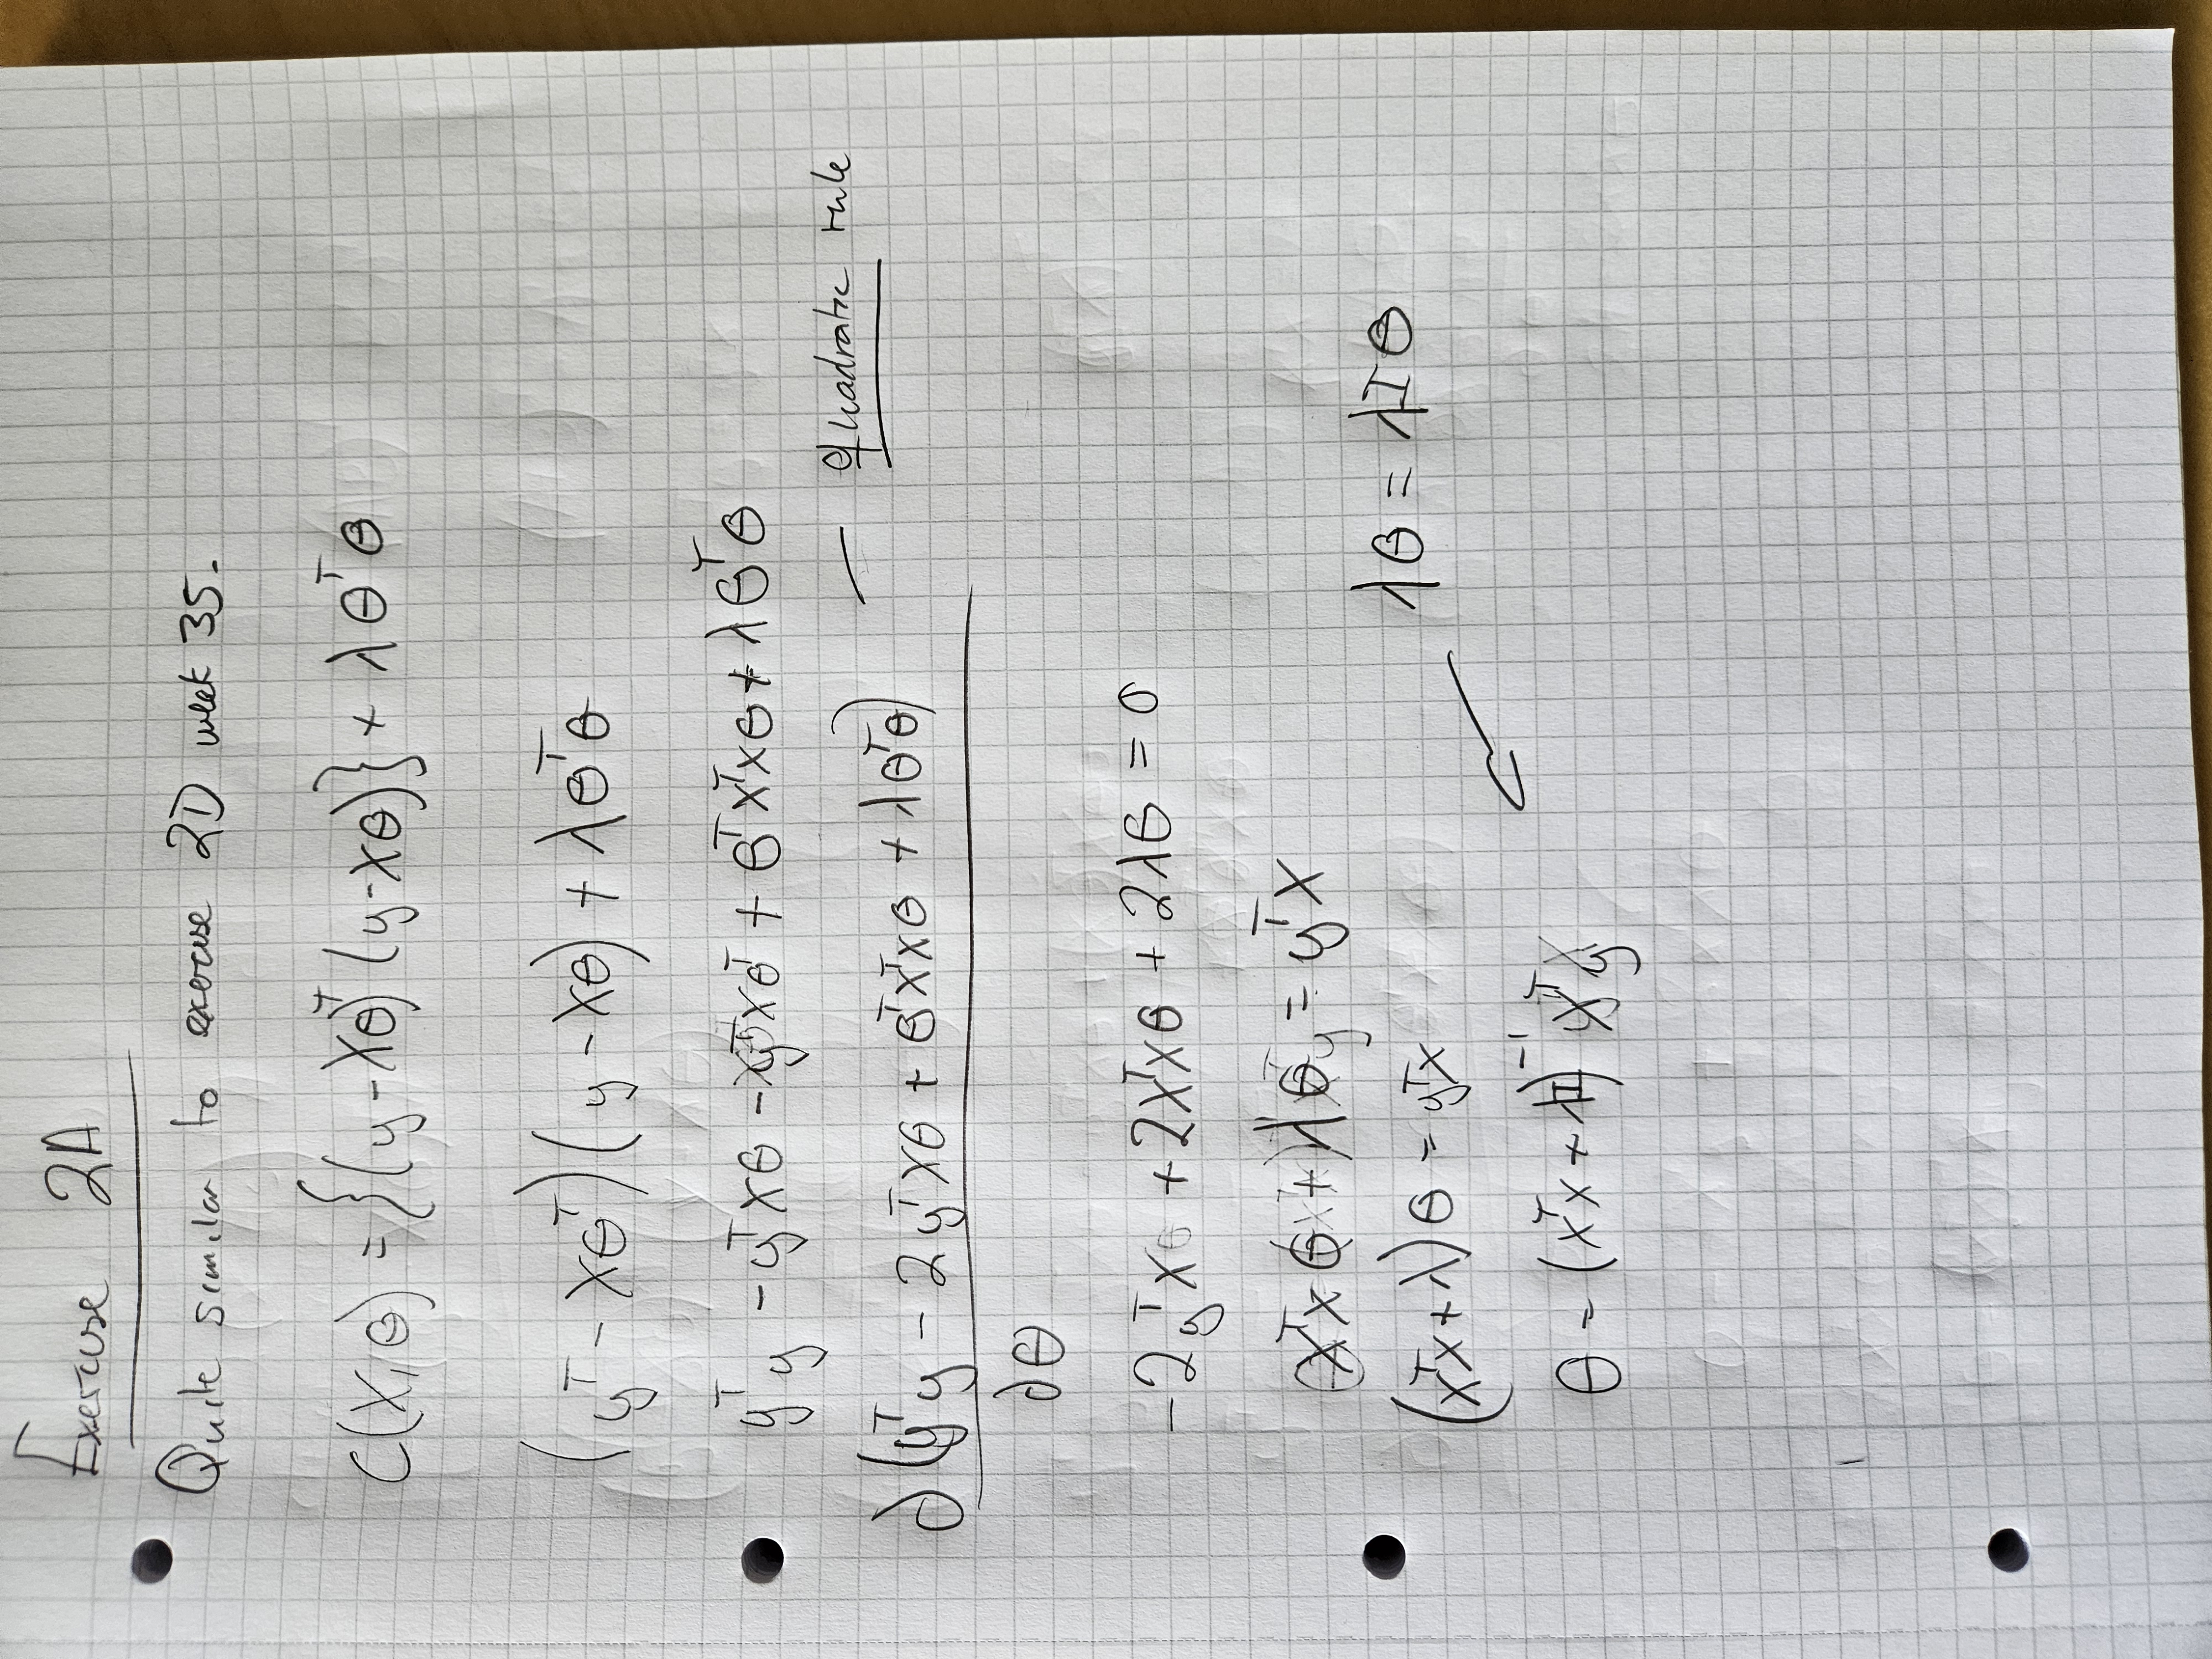 Exercise 2A
Quite similar to exercise 2D week 35.
C(X, θ) = {(y - Xθ)ᵀ (y - Xθ)} + λθᵀθ
(yᵀ - Xθᵀ)(y - Xθ) + λθᵀθ
yᵀy - yᵀXθ - yᵀXθᵀ + θᵀXᵀXθ + λθᵀθ
∂(yᵀy - 2yᵀXθ + θᵀXᵀXθ + λθᵀθ) — quadratic rule
∂θ
-2yᵀX + 2XᵀXθ + 2λθ = 0
XᵀXθ + λθ = yᵀX
λθ = λIθ
(XᵀX + λ)θ = yᵀX
θ = (XᵀX + λI)⁻¹ Xᵀy